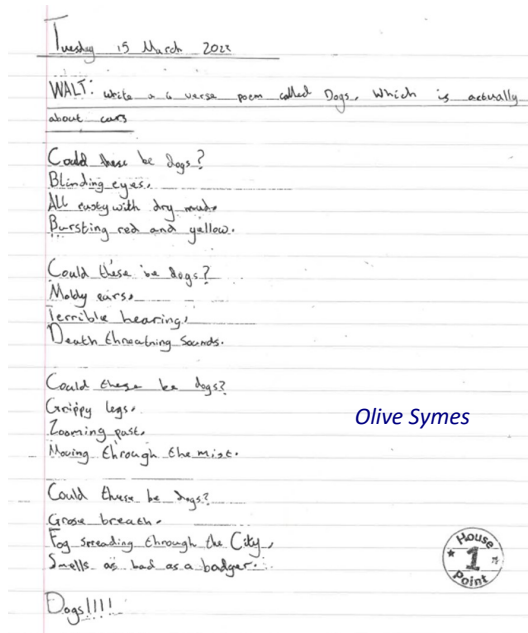 Tuesday 15 March 2022
WALT: write a 6 verse poem called Dogs, Which is actually
about cars
Could these be dogs?
Blinding eyes,
All rusty with dry mud,
Bursting red and yellow.
Could these be dogs?
Moldy ears,
Terrible hearing,
Death threatning sounds.
Could these be dogs?
Grippy legs,
Zooming past,
Moving through the mist.
Olive Symes
Could these be dogs?
Grose breath,
Fog spreading through the City,
Smells as bad as a badger.
House
1
Point
Dogs!!!!